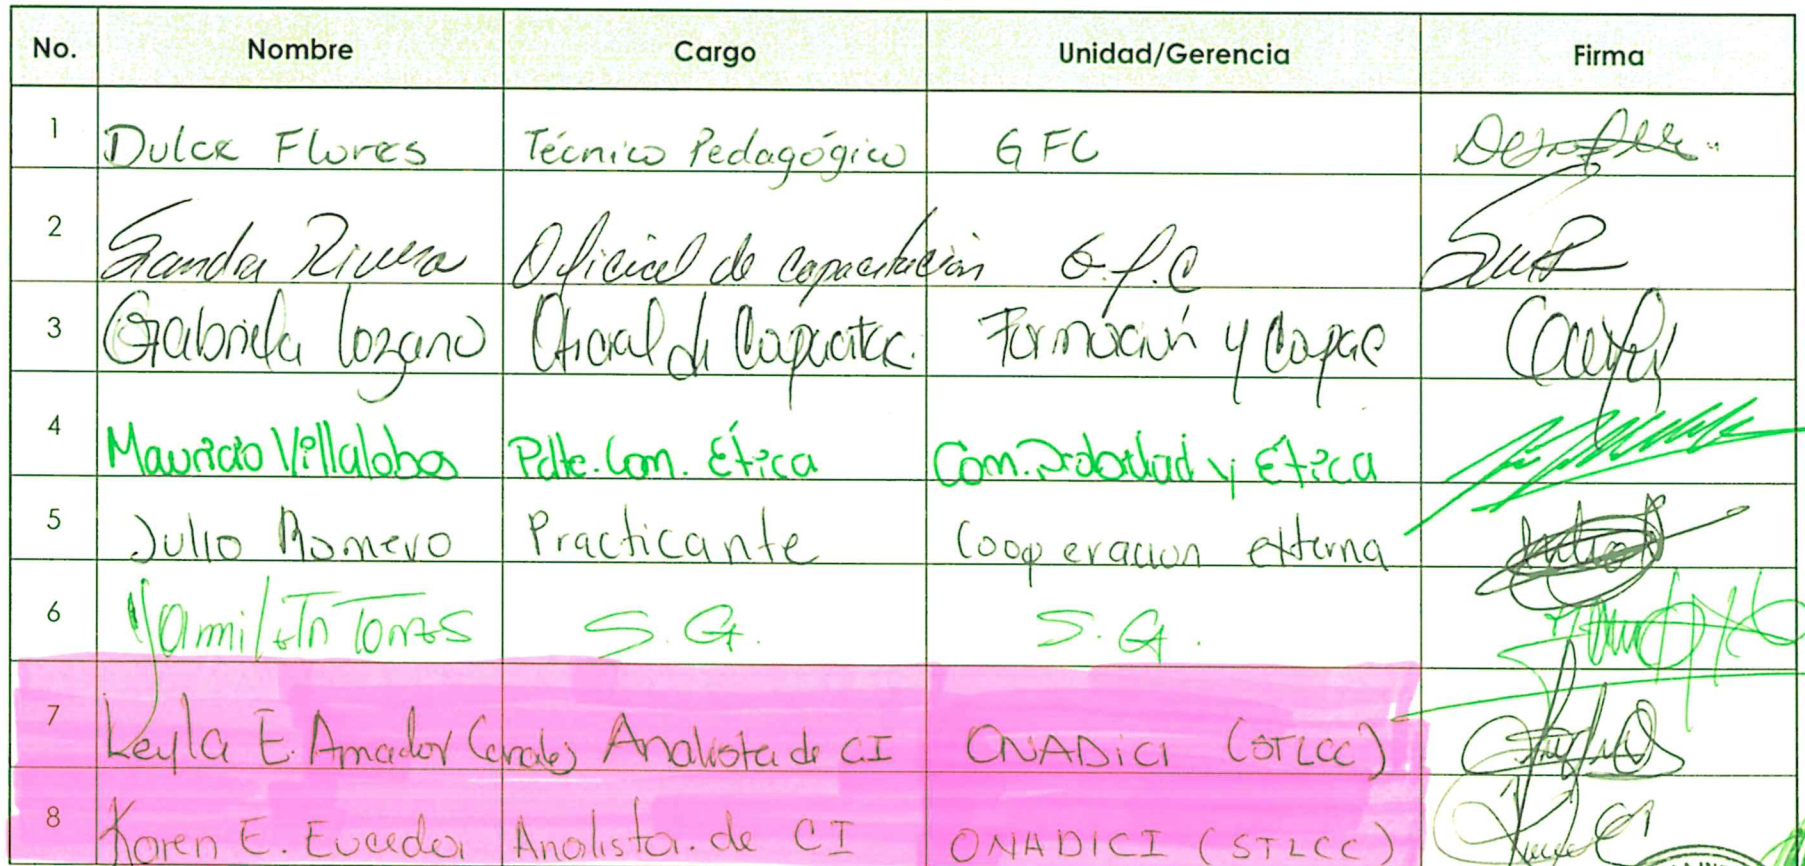 No. Nombre Cargo Unidad/Gerencia Firma
1 Dulce Flores Técnico Pedagógico GFC
2 Sandra Rivera Oficial de capacitación G.f.C
3 Gabriela Lozano Oficial de Capacitac. Formación y Capac
4 Mauricio Villalobos Pdte. Com. Ética Com. Probidad y Ética
5 Julio Romero Practicante Cooperacion externa
6 Yamileth Torres S.G. S.G.
7 Keyla E. Amador Canales Analista de CI ONADICI (STLCC)
8 Karen E. Euceda Analista de CI ONADICI (STLCC)